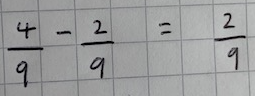 4/9 - 2/9 = 2/9